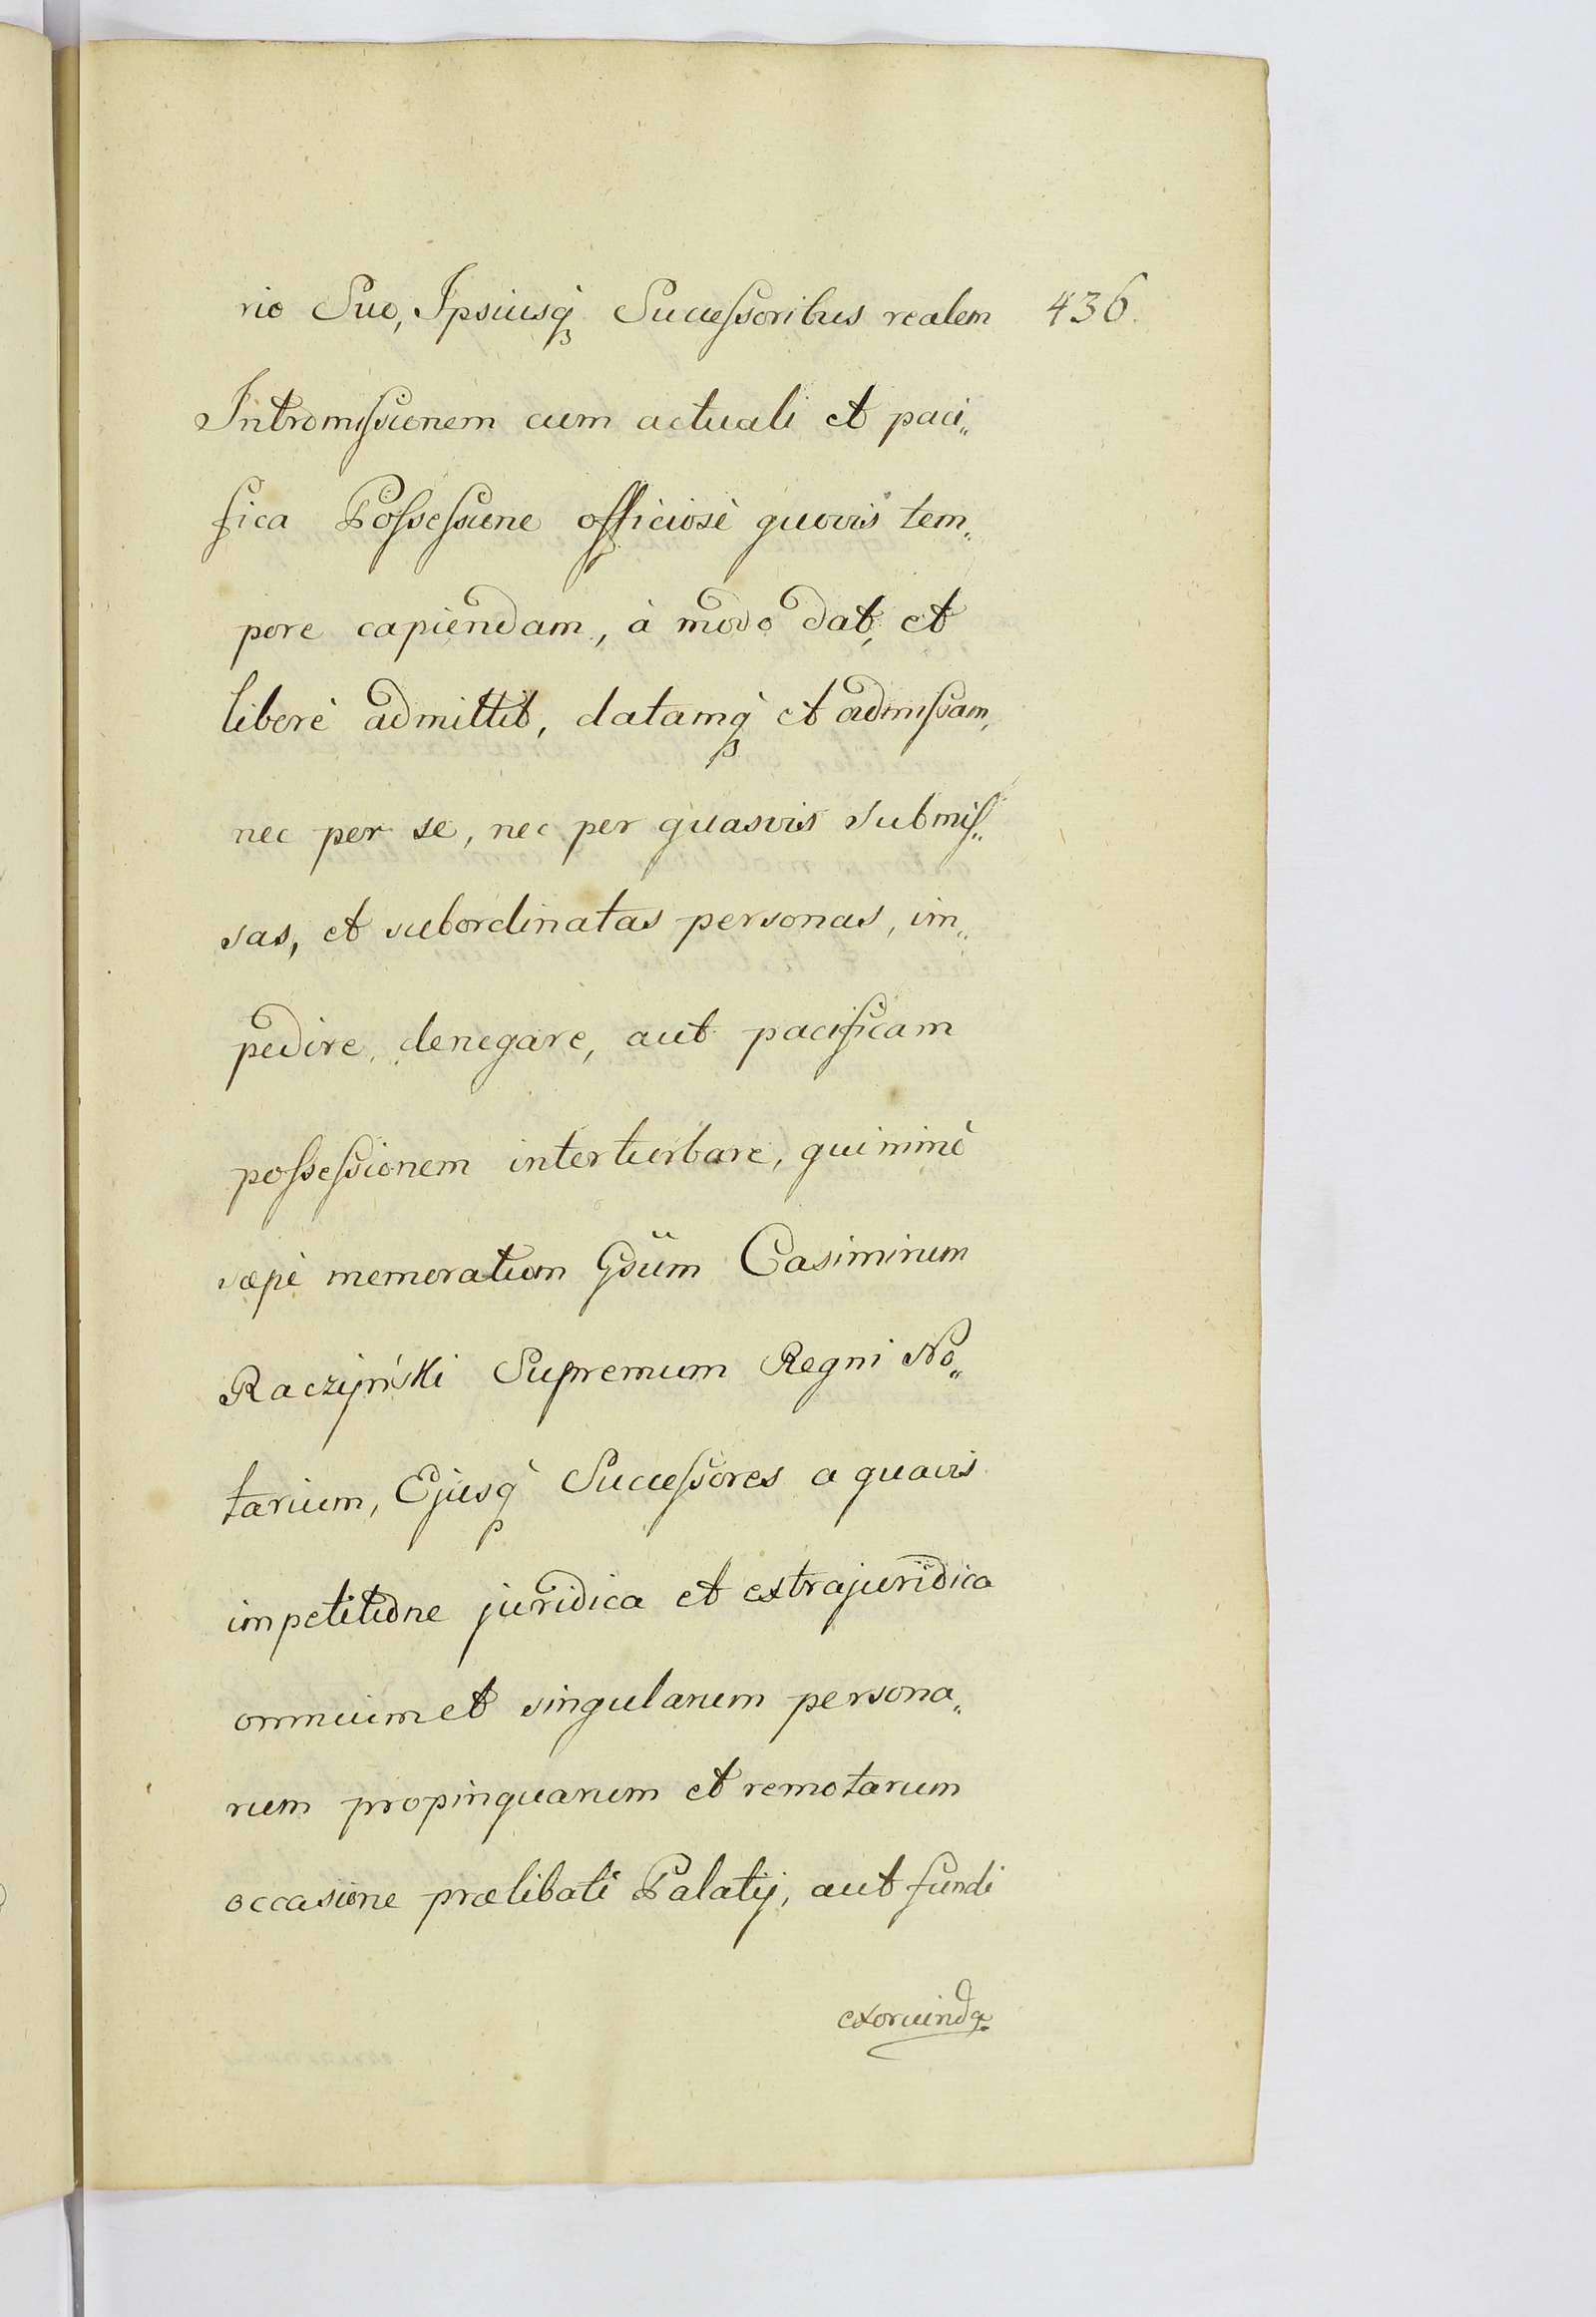 rio Suo, Ipsiusq́ʒ Succeſsoribus realem 436.
Intromiſsionem cum actuali et paci„
fica Poſseſsione officiosè quovis tem„
pore capiendam, à modo dat, et
liberè admittit, datamq́ʒ et admiſsam,
nec per se, nec per quasvis submiſ„
sas, et subordinatas personas, im„
pedire, denegare, aut pacificam
poſseſsionem interturbare, quinimò
sæpè memoratum Gsum̈ Casimirum
Raczyński Supremum Regni No„
tarium, Ejusq́ʒ Succeſsores a quavis
impetitione juridica et extrajuridica
omnium et singularum persona„
rum propinquarum et remotarum
occasione prælibati Palatij, aut fundi
exoriundæ